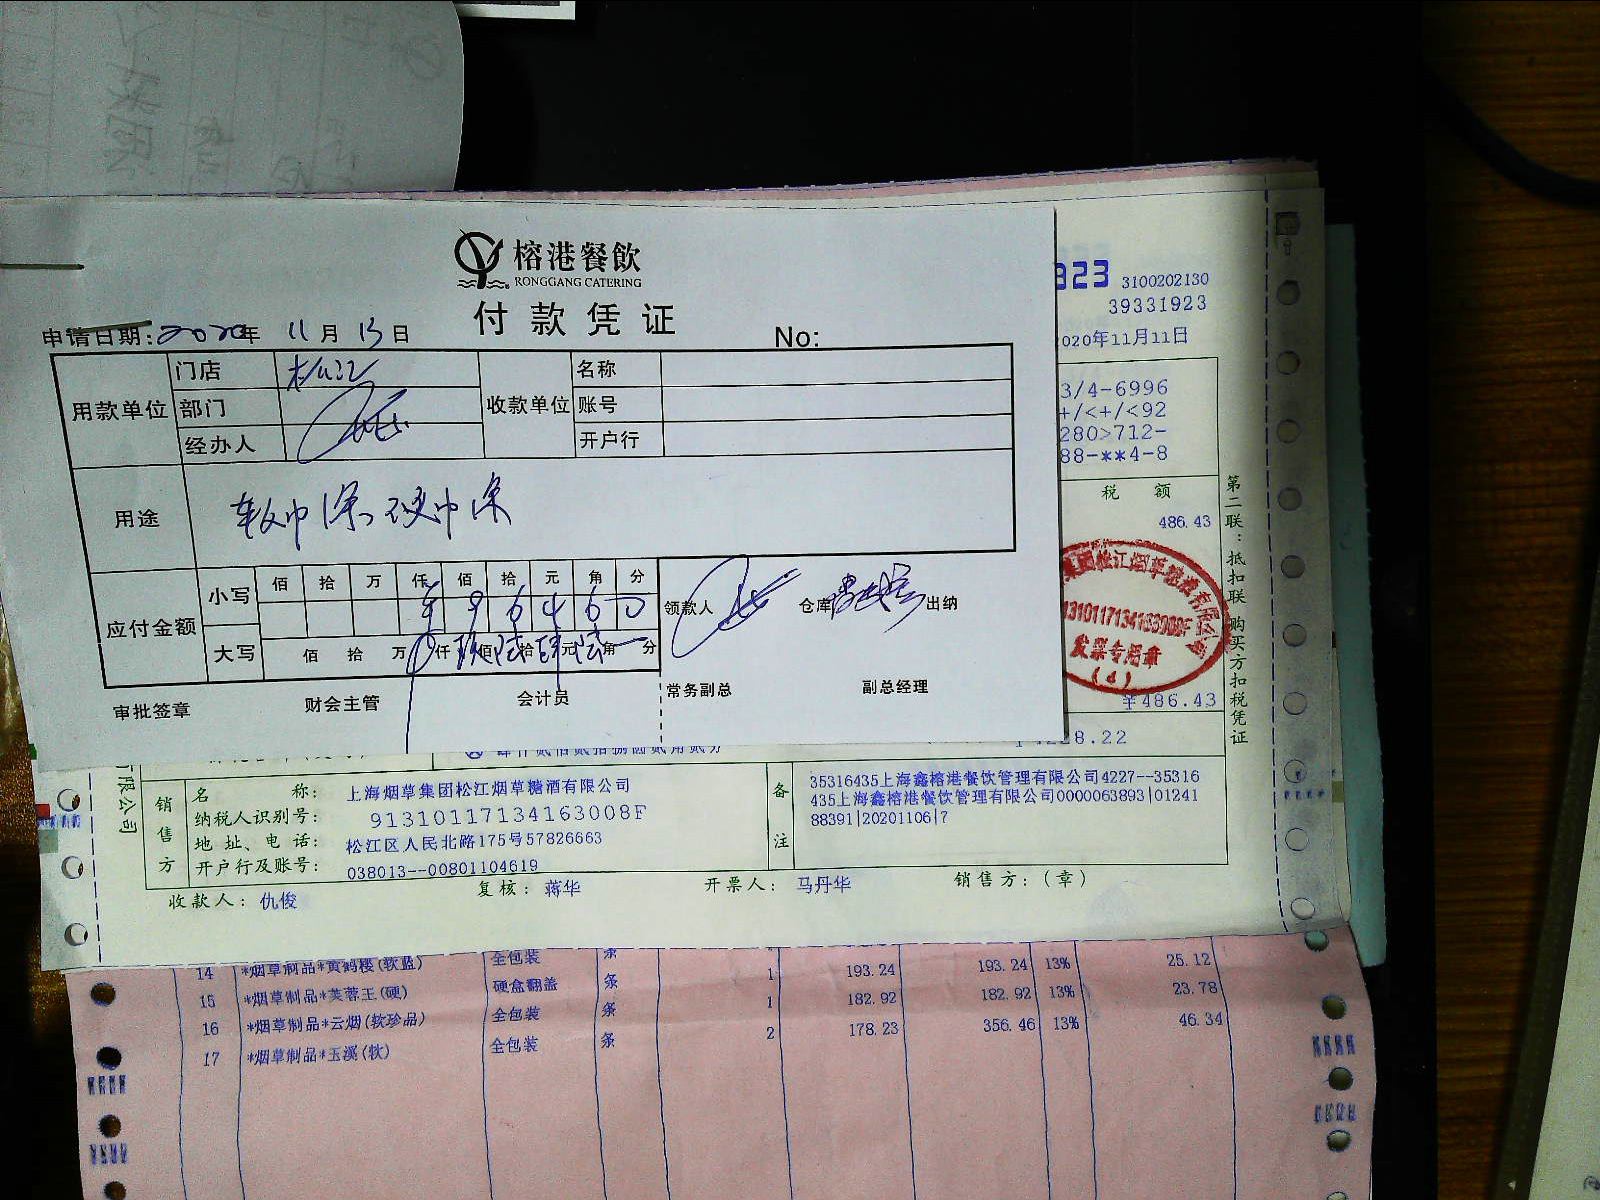 榕港餐飲
RONGGANG CATERING
付款凭证
申请日期:2020年 11月 13日
No:
用款单位
门店 松江
部门
经办人
收款单位
名称
账号
开户行
用途
应付金额
小写
佰 拾 万 仟 佰 拾 元 角 分
¥ 9 6 4 6 0
大写
佰 拾 万 仟 佰 拾 元 角 分
领款人
仓库
出纳
审批签章
财会主管
会计员
常务副总
副总经理
923 3100202130
39331923
2020年11月11日
3/4-6996
+/<+/<92
280>712-
88-**4-8
税 额
486.43
发票专用章
(4)
¥486.43
第二联:抵扣联 购买方扣税凭证
销售方
名 称: 上海烟草集团松江烟草糖酒有限公司
纳税人识别号: 91310117134163008F
地 址、电 话: 松江区人民北路175号57826663
开户行及账号: 038013--00801104619
备注
35316435上海鑫榕港餐饮管理有限公司4227--35316
435上海鑫榕港餐饮管理有限公司0000063893|01241
88391|20201106|7
收款人: 仇俊
复核: 蒋华
开票人: 马丹华
销售方:(章)
有限公司
14 *烟草制品*黄鹤楼(软蓝) 全包装 条 1 193.24 193.24 13% 25.12
15 *烟草制品*芙蓉王(硬) 硬盒翻盖 条 1 182.92 182.92 13% 23.78
16 *烟草制品*云烟(软珍品) 全包装 条 2 178.23 356.46 13% 46.34
17 *烟草制品*玉溪(软) 全包装 条